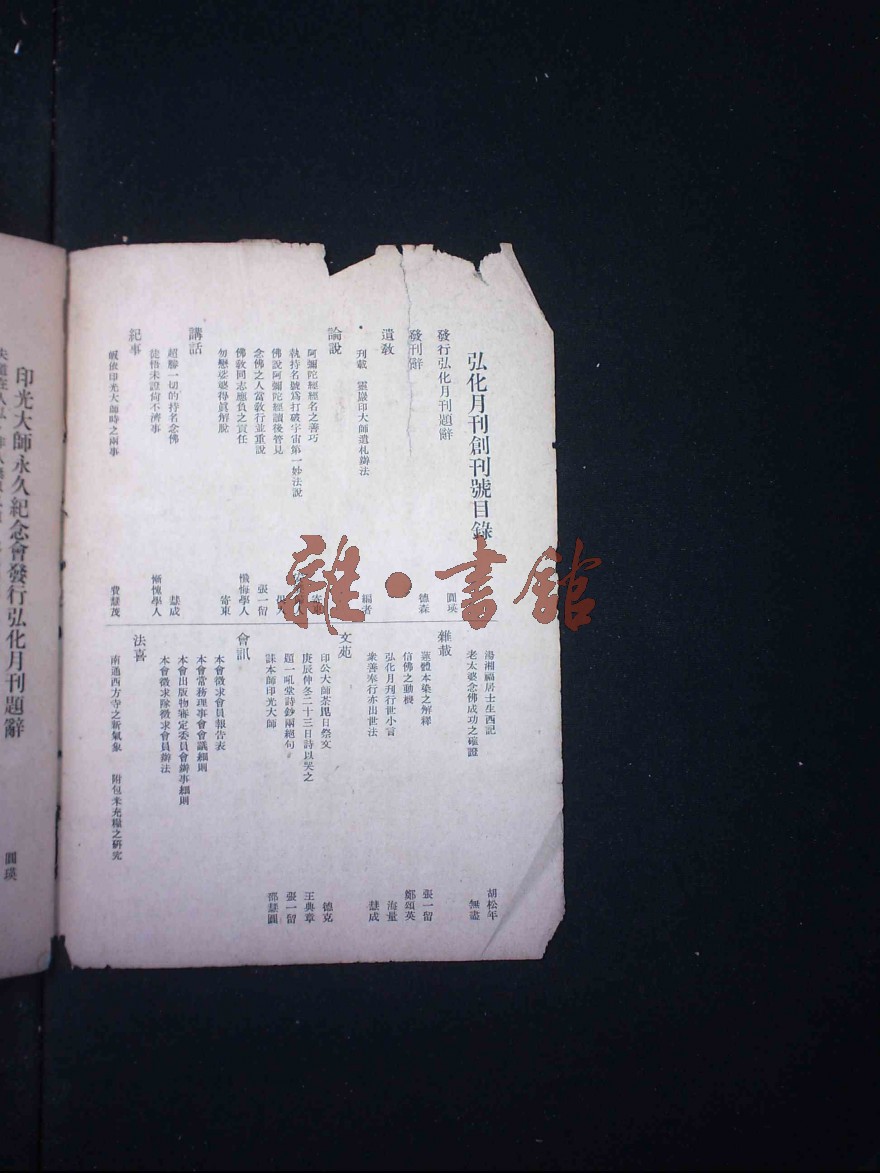 弘化月刊創刊號目錄
發行弘化月刊題辭 圓瑛
發刊辭 德森
遺教
刊載 靈巖印大師遺札辦法 編者
論說
阿彌陀經經名之善巧 寄東
執持名號爲打破宇宙第一妙法說
佛說阿彌陀經讀後管見
念佛之人當敦行並重說 張一留
佛教同志應負之責任 懺悔學人
勿戀娑婆得眞解脫 寄東
講話
超勝一切的持名念佛 慧成
徒悟未證尙不濟事 慚愧學人
紀事
皈依印光大師時之兩事 費慧茂
湯湘福居士生西記 胡松年
老太婆念佛成功之確證 無盡
雜載
蓮體本染之解釋 張一留
信佛之動機 鄭頌英
弘化月刊行世小言 海量
衆善奉行亦出世法 慧成
文苑
印公大師荼毘日祭文 德克
庚辰仲冬二十三日詩以哭之 王典章
題一吼堂詩鈔兩絕句 張一留
誄本師印光大師 鄧慧圓
會訊
本會徵求會員報告表
本會常務理事會會議細則
本會出版物審定委員會辦事細則
本會徵求隊徵求會員辦法
法喜
南通西方寺之新氣象 附包米充糧之硏究
印光大師永久紀念會發行弘化月刊題辭
圓瑛
雜·書館